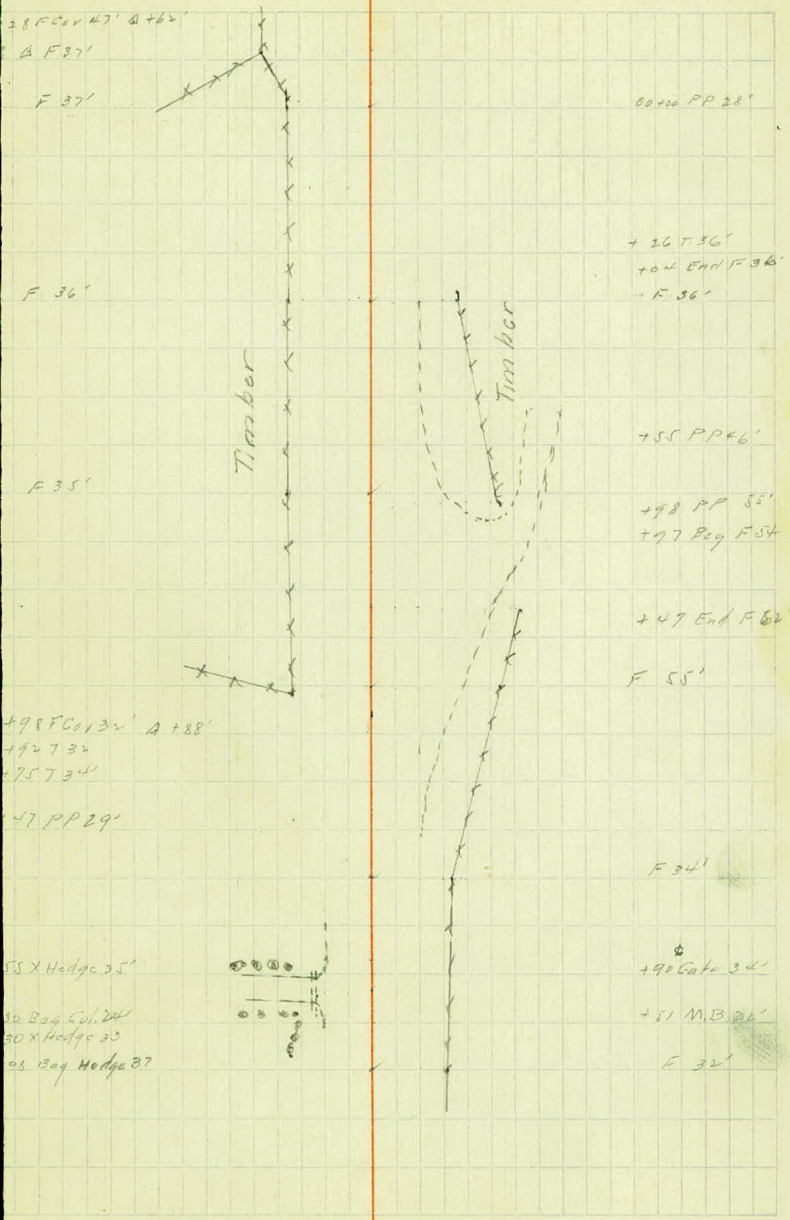 28 F Cor 47' Δ +62'
Δ F 37'
F 37'
F 36'
Timber
F 35'
+98 F Cor 32' Δ +88'
+92 T 32
+75 T 34'
47 PP 29'
55 X Hedge 35'
30 Beg Cul. 24'
30 X Hedge 33
08 Beg Hedge 37
60+00 PP 28'
+26 T. 36'
+04 End F 36'
F 36'
Timber
+55 PP 46'
+98 PP 55'
+97 Beg F 54
+47 End F 62
F 55'
F 34'
+90 Gate 34'
+51 M.B
F 32'